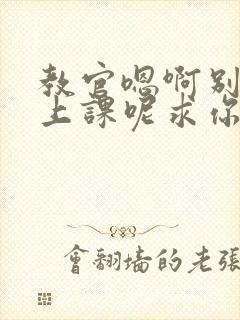 教官嗯啊别
上課呢求你
會翻墙的老張